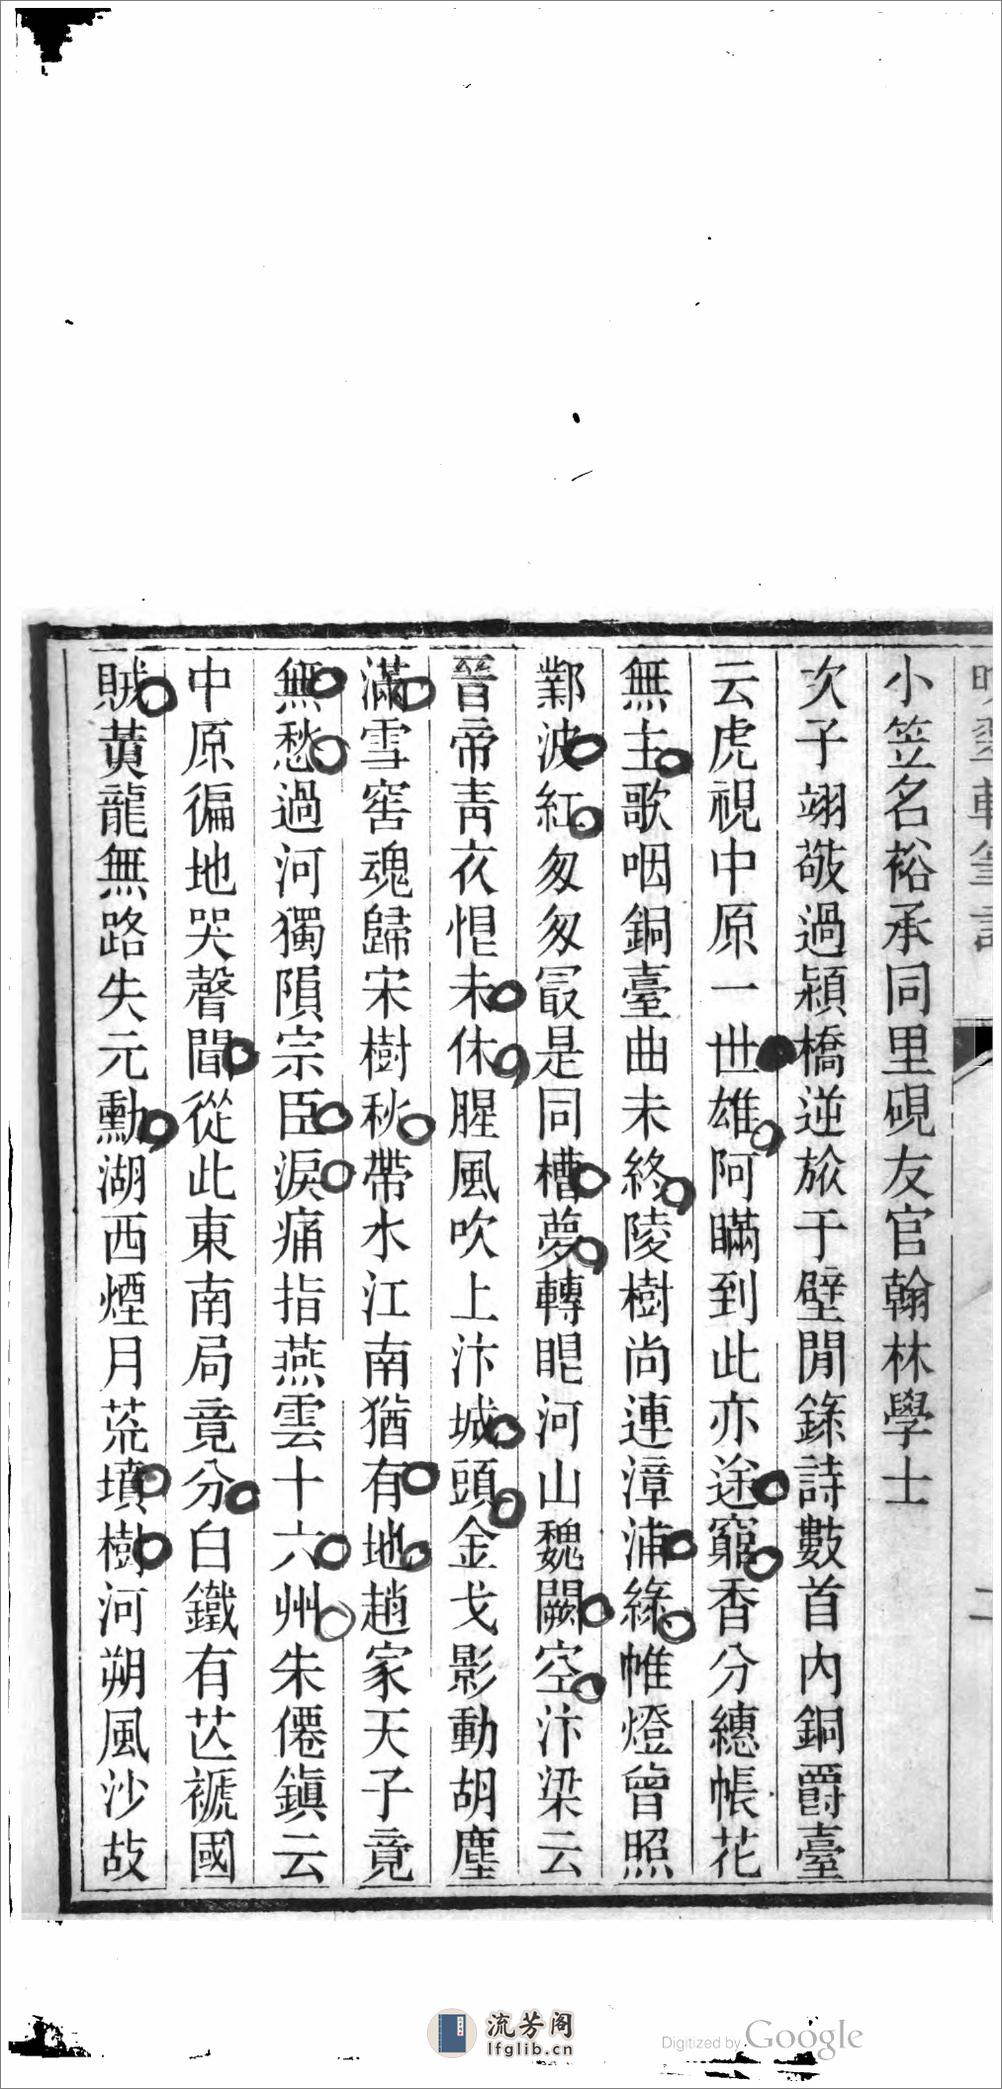 小笠名裕承同里硯友官翰林學士
次子翊敬過潁橋逆旅于壁閒錄詩數首內銅爵臺
云虎視中原一世雄阿瞞到此亦途窮香分繐帳花
無主歌咽銅臺曲未終陵樹尚連漳浦綠帷燈曾照
鄴波紅匆匆最是同槽夢轉眼河山魏闕空汴梁云
晉帝青衣恨未休腥風吹上汴城頭金戈影動胡塵
滿雪窖魂歸宋樹秋帶水江南猶有地趙家天子竟
無愁過河獨隕宗臣淚痛指燕雲十六州朱僊鎮云
中原徧地哭聲聞從此東南局竟分白鐵有芒褫國
賊黃龍無路失元勳湖西煙月荒墳樹河朔風沙故
流芳阁
lfglib.cn
Digitized by Google